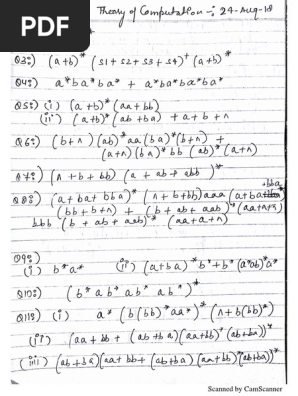 PDF
Theory of Computation :- 24-Aug-18
Q3:) (a+b)* (S1 + S2 + S3 + S4)+ (a+b)*
Q4:) a*ba*ba* + a*ba*ba*ba*
Q5:) (i) (a+b)* (aa+bb)
(ii) (a+b)* (ab+ba) + a+b+Λ
Q6:) (b+Λ)(ab)*aa(ba)*(b+Λ) +
(a+Λ)(ba)*bb(ab)*(a+Λ)
Q7:) (Λ+b+bb)(a+ab+abb)*
Q8:) (a+ba+bba)* (Λ+b+bb)aaa(a+ba+bba)*
(bb+b+Λ) + (b+ab+aab)* (aa+a+Λ)
bbb (b+ab+aab)* (aa+a+Λ)
Q9:)
(i) b*a* (ii) (a+ba)*b*+b*(a*ab)*a*
Q10:) (b*ab*ab*ab*)*
Q11:) (i) a*(b(bb)*aa*)*(Λ+b(bb)*)
(ii) (aa+bb+(ab+ba)(aa+bb)*(ab+ba))*
(iii) (ab+ba)(aa+bb+(ab+ba)(aa+bb)*(ab+ba))*
Scanned by CamScanner